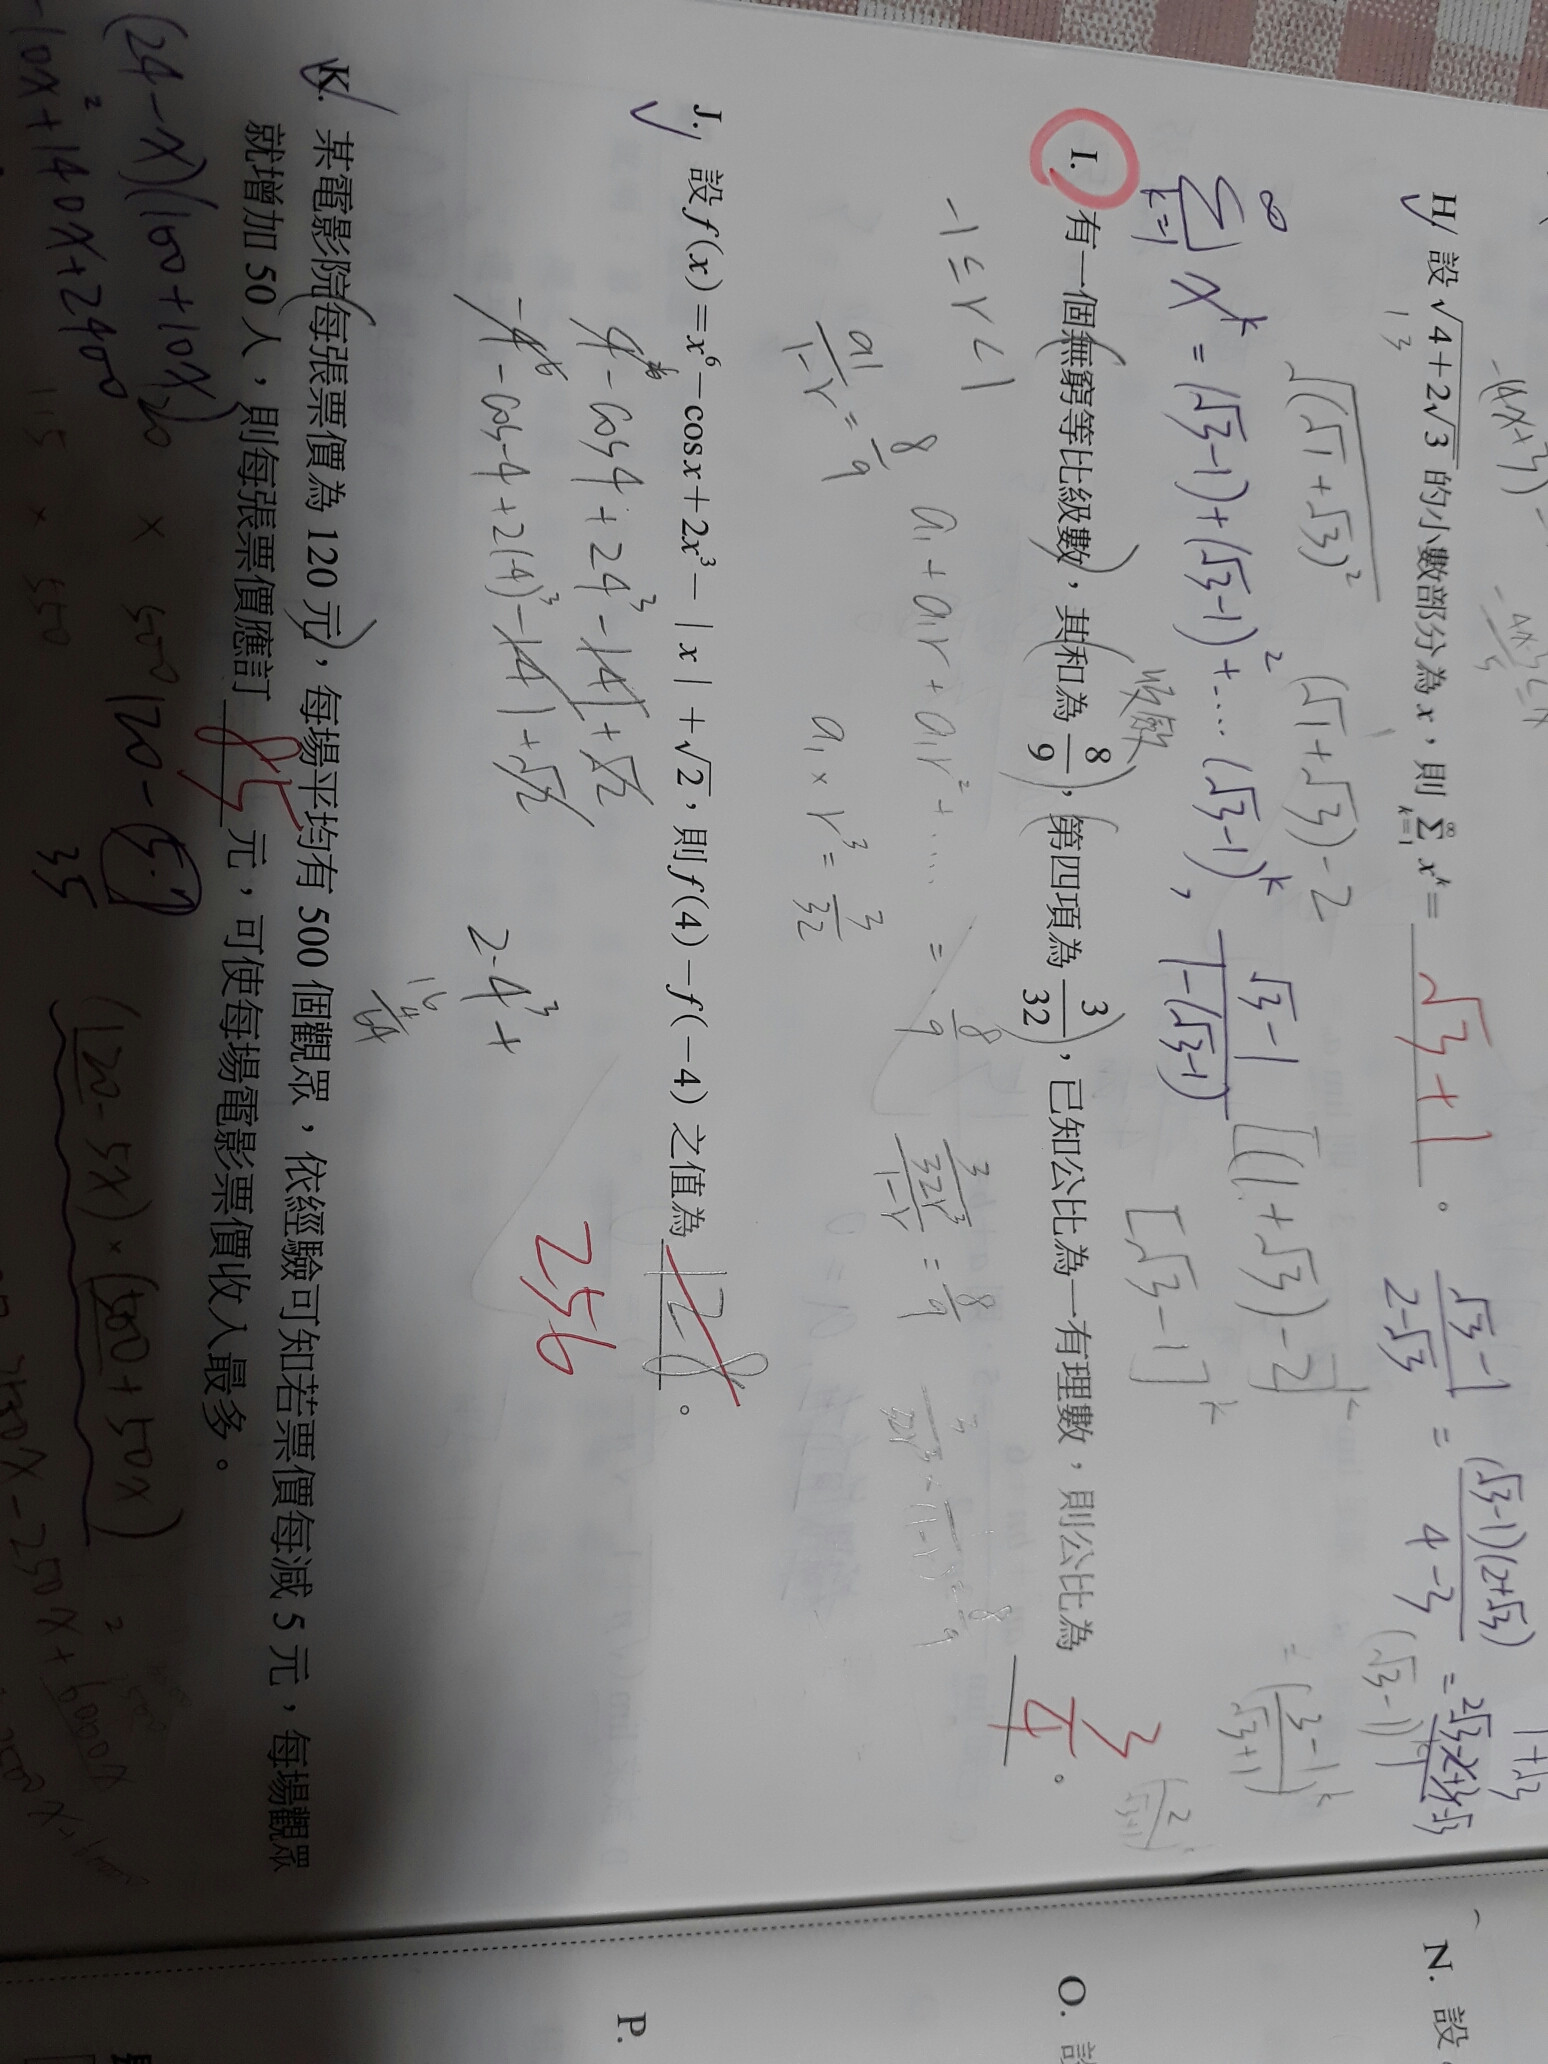 H. 設 √(4+2√3) 的小數部分為 x，則 ∑_{k=1}^{∞} x^k = √3+1 。
√((√1+√3)²) (√1+√3)-2
∑_{k=1}^{∞} x^k = (√3-1)+(√3-1)²+…(√3-1)^k , (√3-1)/(1-(√3-1))
(√3-1)/(2-√3) = ((√3-1)(2+√3))/(4-3)
[(1+√3)-2]^k
[√3-1]^k
收斂
I. 有一個無窮等比級數，其和為 8/9，第四項為 3/32，已知公比為一有理數，則公比為 3/4 。
-1≤r<1
a₁+a₁r+a₁r²+… = 8/9
a1/(1-r) = 8/9
a₁×r³ = 3/32
(3/(32r³))/(1-r) = 8/9
J. 設 f(x)=x⁶-cosx+2x³-|x|+√2，則 f(4)-f(-4) 之值為 128 。
4⁶-cos4+24³-|4|+√2
-4⁶-cos-4+2(-4)³-|-4|+√2
2·4³+
256
16
64
K. 某電影院每張票價為 120 元，每場平均有 500 個觀眾，依經驗可知若票價每減 5 元，每場觀眾
就增加 50 人，則每張票價應訂 85 元，可使每場電影票價收入最多。
(24-x)(100+10x)
120-5·7
35
(120-5x)·(500+50x)
-10x²+140x+2400
N. 設
O.
P.